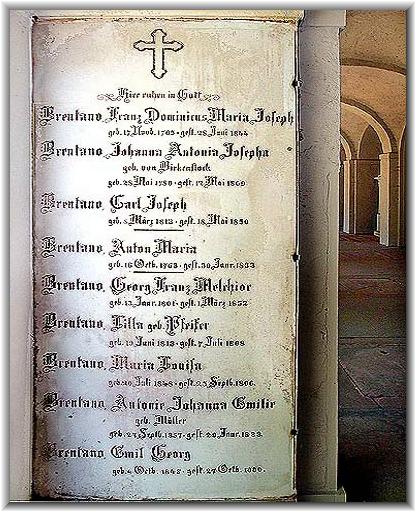 Hier ruhen in Gott
Brentano, Franz Dominicus Maria Joseph
geb. 17. Novb. 1765 · gest. 28. Juni 1844
Brentano, Johanna Antonia Josepha
geb. von Birkenstock
geb. 28 Mai 1780 · gest. 12 Mai 1869
Brentano, Carl Joseph
geb. 8 März 1813 · gest. 18. Mai 1850
Brentano, Anton Maria
geb. 16 Octb. 1763 · gest. 30. Janr. 1833
Brentano, Georg Franz Melchior
geb. 13. Janr. 1801 · gest. 1. März 1852
Brentano, Lilla geb. Pfeifer
geb. 19 Juni 1813 · gest. 7. Juli 1868
Brentano, Maria Louisa
geb. Juli · gest. 25. Septb.
Brentano, Antonie Johanna Emilie
geb. Müller
geb. 27. Septb. 1857 · gest. 20. Janr.
Brentano, Emil Georg
geb. Octb. · gest. 27. Octb.